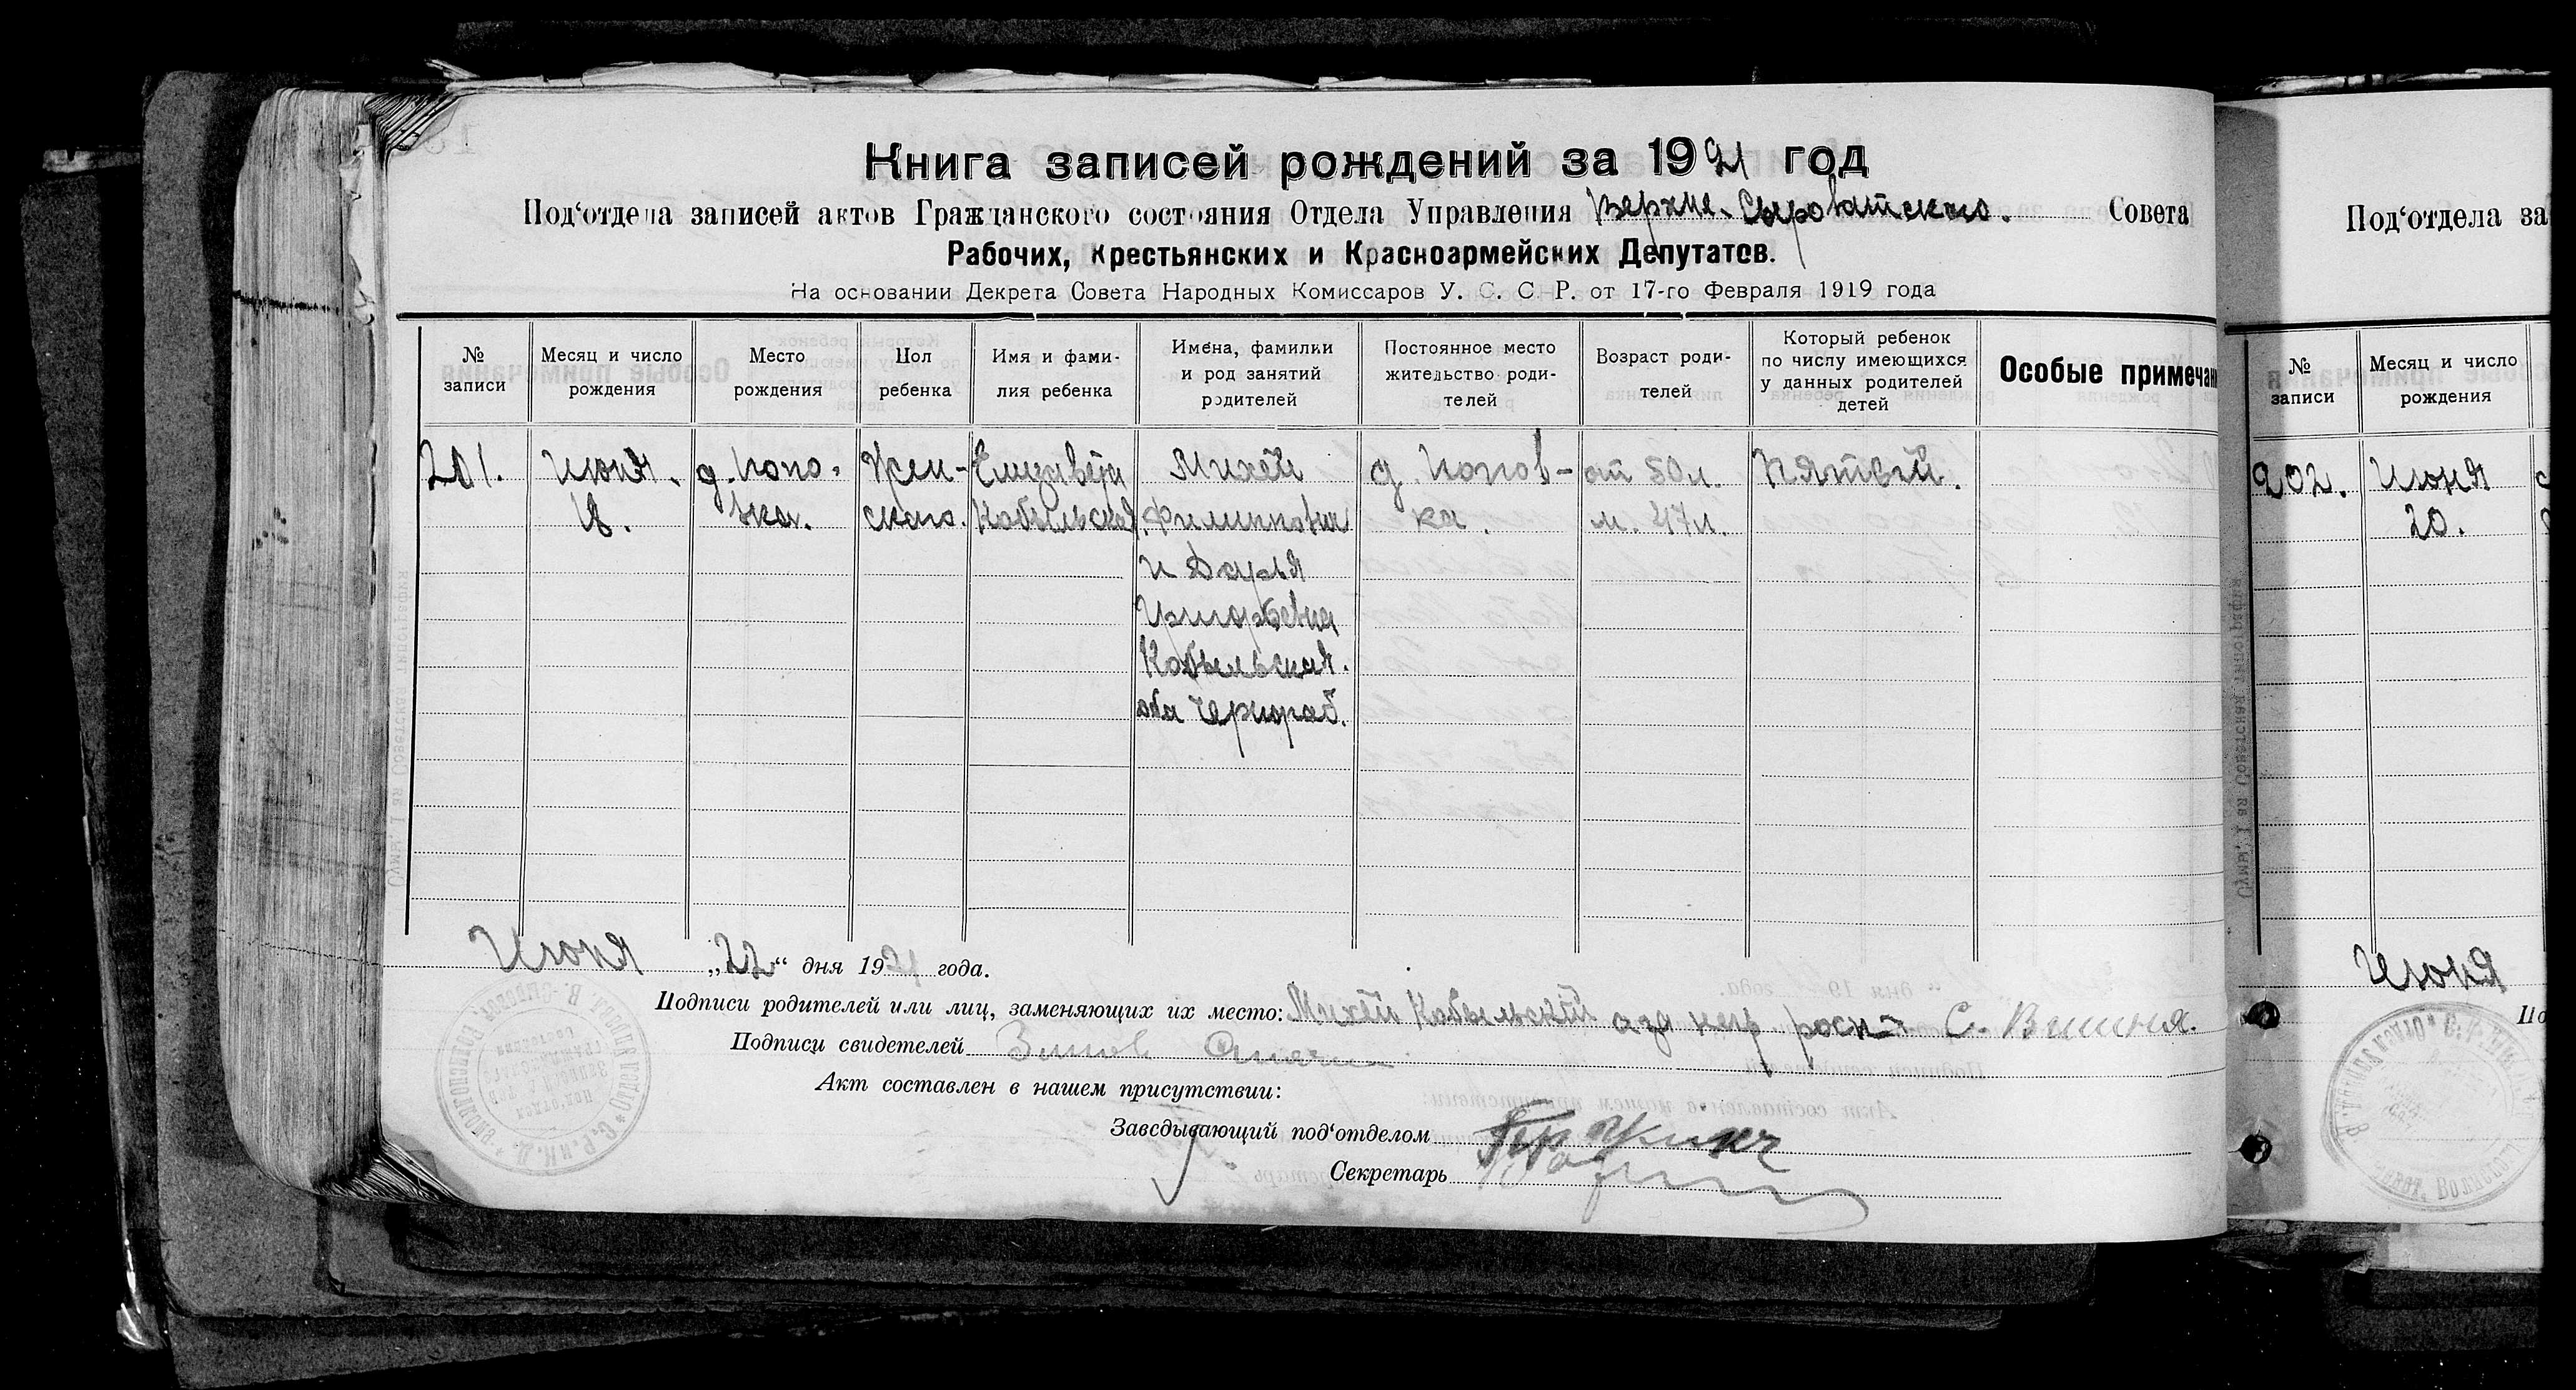 Книга записей рождений за 1921 год
Под‘отдела записей актов Гражданского состояния Отдела Управления Верхне-Сыроватского. Совета
Рабочих, Крестьянских и Красноармейских Депутатов.
На основании Декрета Совета Народных Комиссаров У. С. С. Р. от 17-го Февраля 1919 года
№ записи
Месяц и число рождения
Место рождения
Пол ребенка
Имя и фами-
лия ребенка
Имена, фамилии
и род занятий
родителей
Постоянное место
жительство роди-
телей
Возраст роди-
телей
Который ребенок
по числу имеющихся
у данных родителей
детей
Особые примечан
201.
Июня.
18.
д. Попо-
вка.
Жен-
ского.
Елизавета
Кобыльская
Михей
Филиппович
и Дарья
Григорьевна
Кобыльская.
оба чернораб.
д. Попов-
ка.
от 50 л.
м. 47 л.
Пятый.
Июня „22“ дня 1921 года.
Подписи родителей или лиц, заменяющих их место: Михей Кобыльский С. Вишня.
Подписи свидетелей
Акт составлен в нашем присутствии:
Заведывающий под‘отделом
Секретарь
Под‘отдела за
№
записи
Месяц и число
рождения
202.
Июня
20.
Июня